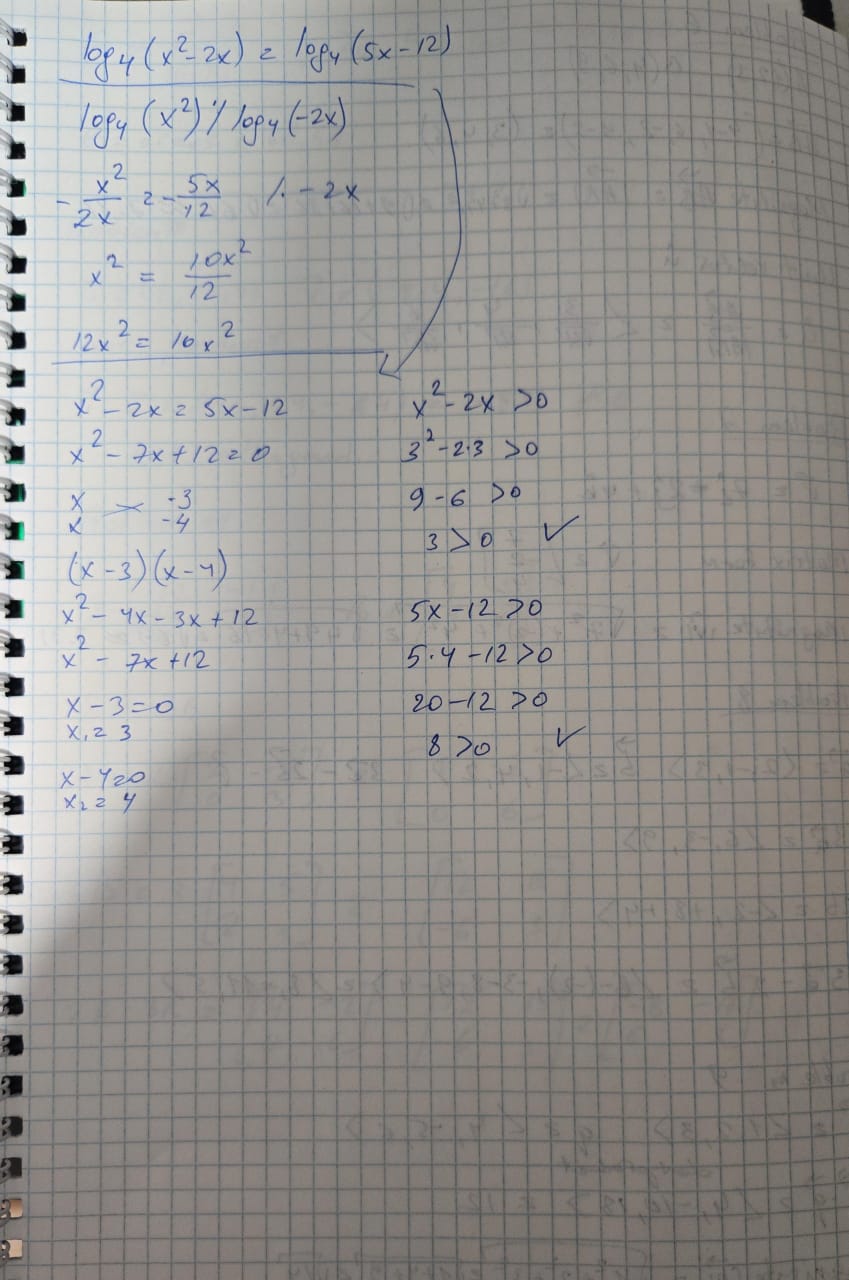 log₄(x²-2x) = log₄(5x-12)
log₄(x²) / log₄(-2x)
- x²/2x = - 5x/12 /. - 2x
x² = 10x²/12
12x² = 10x²
x² - 2x = 5x - 12
x² - 7x + 12 = 0
x -3
x -4
(x - 3)(x - 4)
x² - 4x - 3x + 12
x² - 7x + 12
x - 3 = 0
x₁ = 3
x - 4 = 0
x₂ = 4
x² - 2x > 0
3² - 2·3 > 0
9 - 6 > 0
3 > 0 ✓
5x - 12 > 0
5·4 - 12 > 0
20 - 12 > 0
8 > 0 ✓